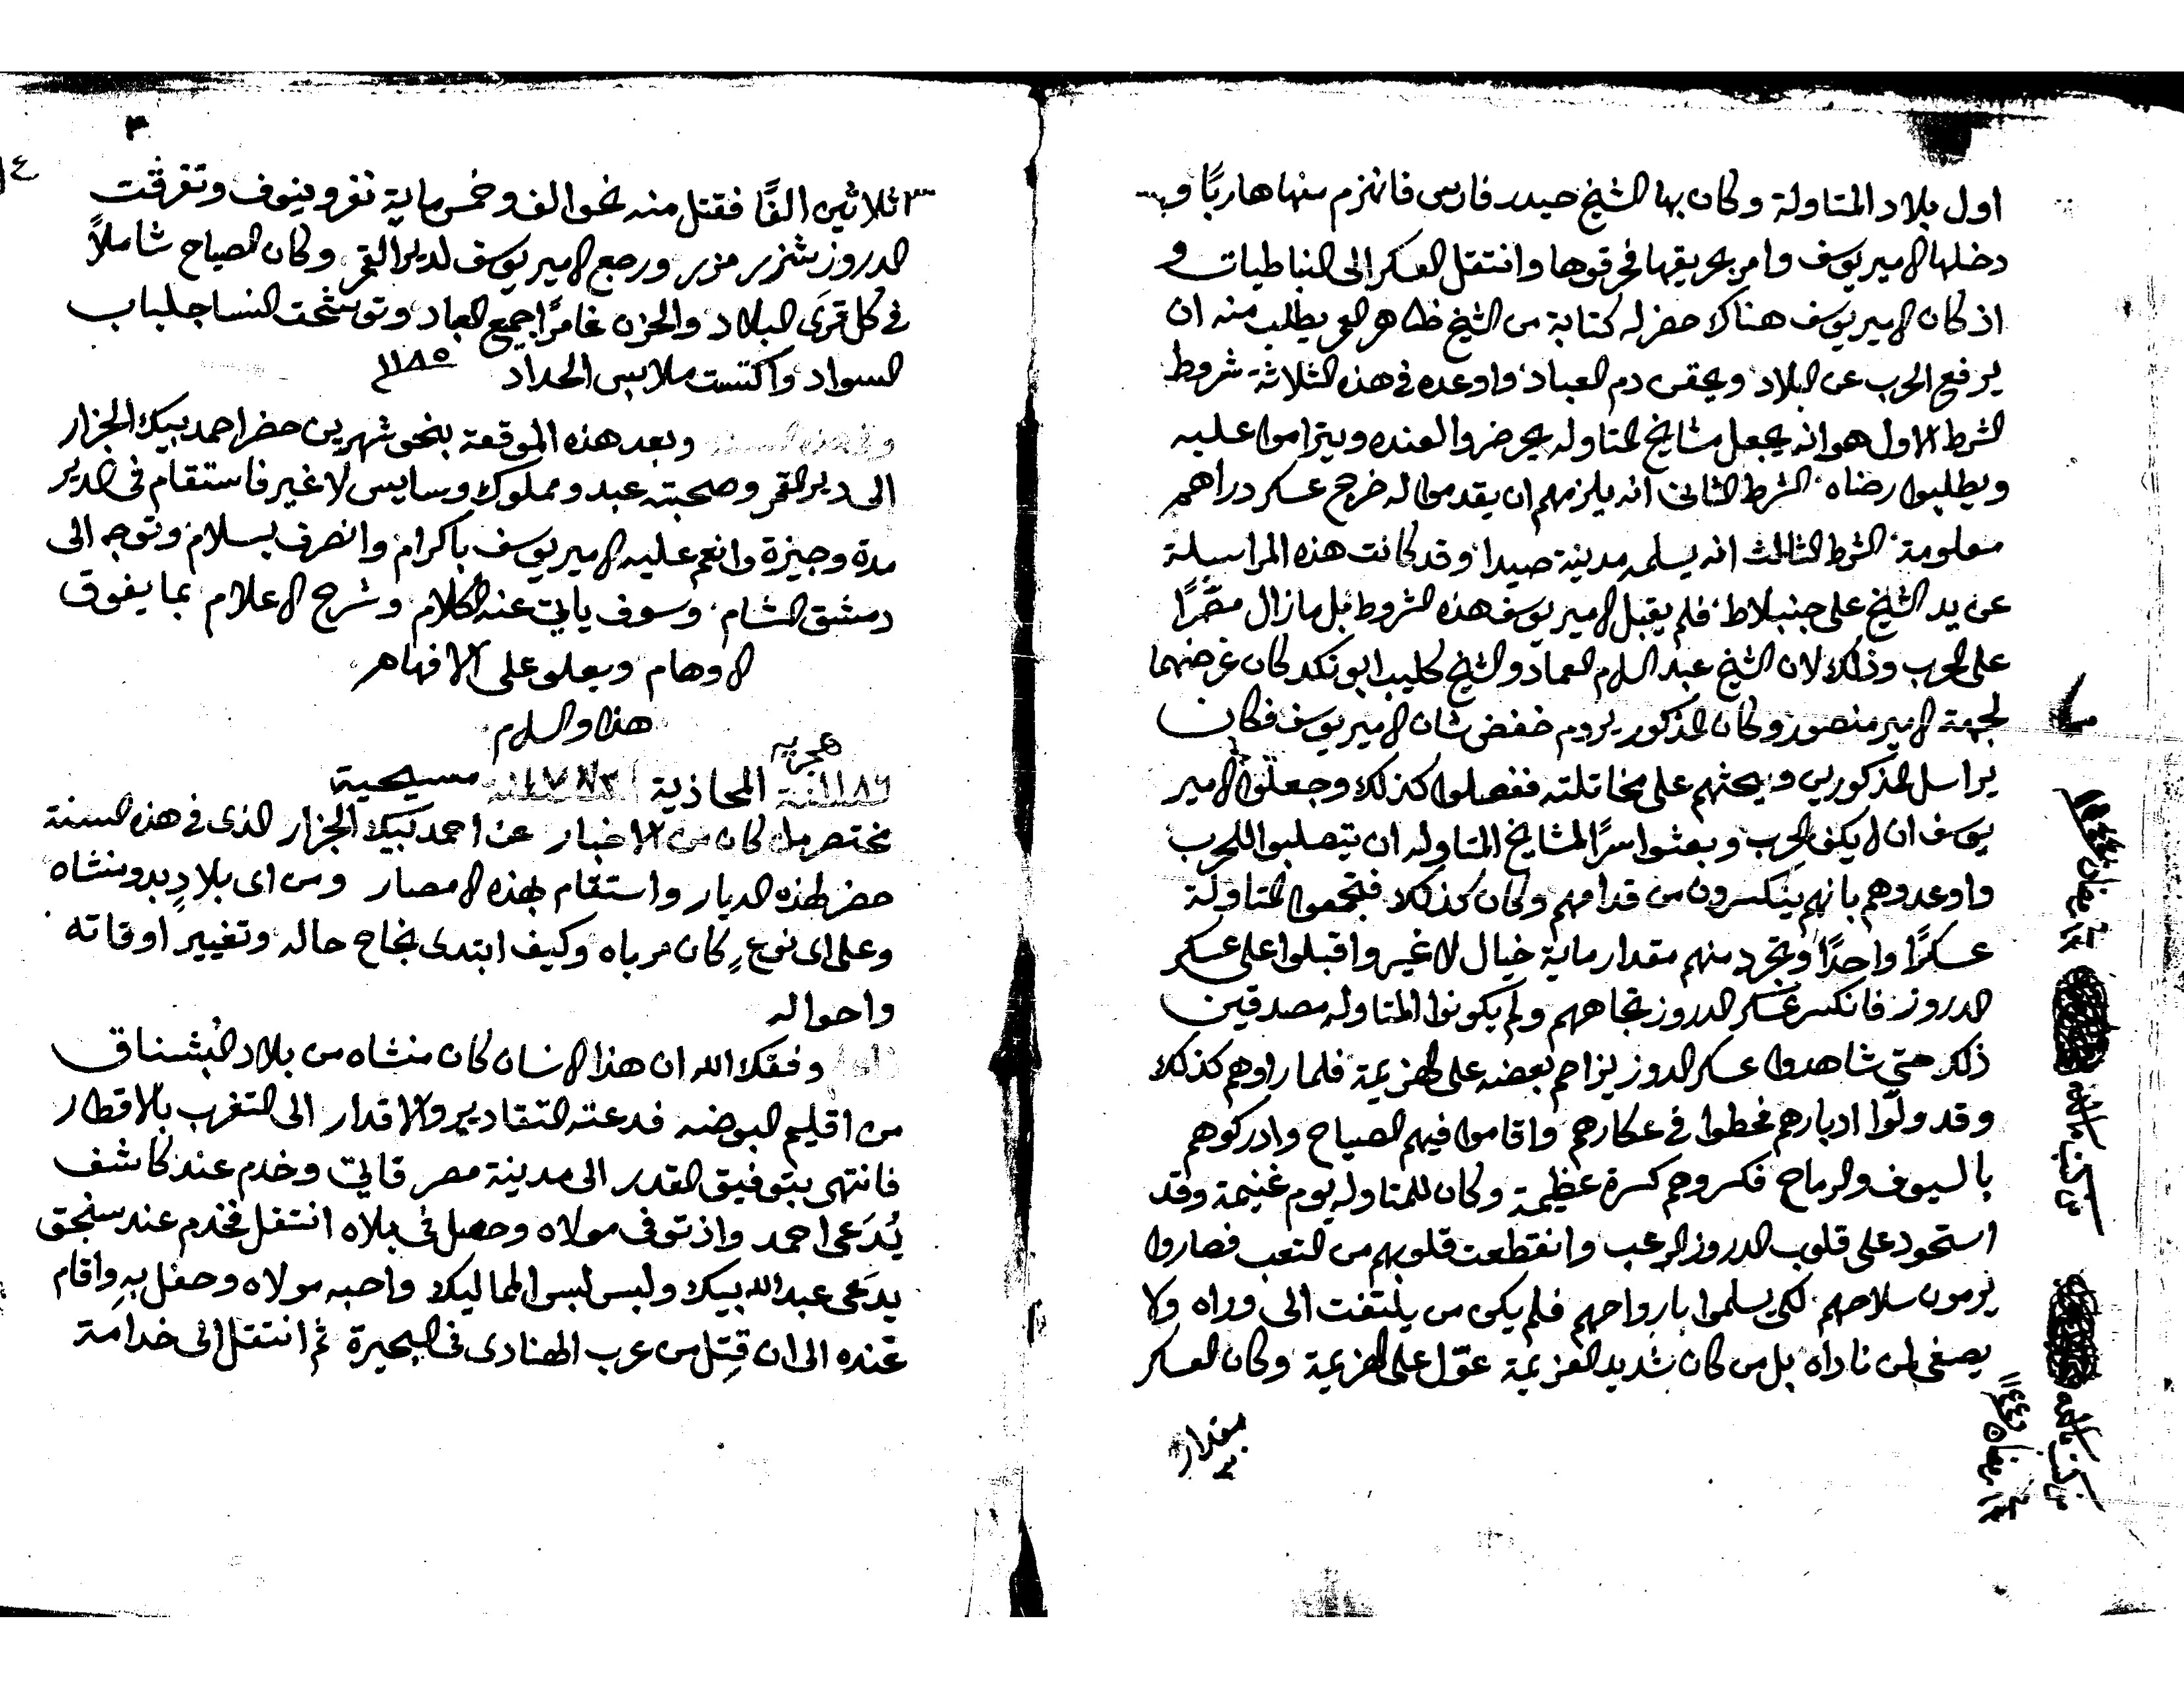 اول بلاد المتاولة وكان بها الشيخ حيدر فارس فانهزم منها هاربًا و
دخلها الامير يوسف وامر بحريقها فحرقوها وانتقل العسكر الى النباطيات و
اذ كان الامير يوسف هناك حضر له كتابة من الشيخ ظاهر العمر يطلب منه ان
يرفع الحرب عن البلاد ويحقن دم العباد واوعده في هذه الثلاثة شروط
الشرط الاول هو انه يجعل مشايخ المتاوله يحضروا لعنده ويتراموا عليه
ويطلبوا رضاه الشرط الثاني انه يلزمهم ان يقدموا له خرج عسكر دراهم
معلومة الشرط الثالث انه يسلمه مدينة صيدا وقد كانت هذه المراسلة
عن يد الشيخ علي جنبلاط فلم يقبل الامير يوسف هذه الشروط بل ما زال مصّرًا
على الحرب وذلك لان الشيخ عبد السلام العماد والشيخ كليب ابو نكد كان غرضهما
لجهة الامير منصور وكان المذكور يروم خفض شان الامير يوسف فكان
يراسل المذكورين ويحثهم على مخاتلته ففعلوا كذلك وجعلوا الامير
يوسف ان لا يكف الحرب وبعثوا سرًا لمشايخ المتاوله ان يتصلبوا للحرب
واوعدوهم بانهم ينكسرون من قدامهم وكان كذلك فتجمعوا المتاولة
عسكرًا واحدًا وتجرد منهم مقدار ماية خيال لا غير واقبلوا على عسكر
الدروز فانكسر عسكر الدروز تجاههم ولم يكونوا المتاوله مصدقين
ذلك حتي شاهدوا عسكر الدروز يزاحم بعضه على الهزيمة فلما راوهم كذلك
وقد ولّوا ادبارهم فحطوا في عكارهم واقاموا فيهم الصياح وادركوهم
بالسيوف والرماح فكسروهم كسرة عظيمة وكان للمتاوله يوم غنيمة وقد
استحود على قلوب الدروز الرعب وانقطعت قلوبهم من التعب فصاروا
يرمون سلاحهم لكي يسلموا بارواحهم فلم يكن من يلتفت الى وراه ولا
يصغي لمن ناداه بل من كان شديد العزيمة عوّل على الهزيمة وكان العسكر
بمقدار
٣
ثلاثين الفًا فقتل منه نحو الف وخمس ماية نفر وينوف وتفرقت
الدروز شذر مذر ورجع الامير يوسف لدير القمر وكان الصياح شاملاً
في كل قرَى البلاد والحزن غامرًا جميع العباد وتوشحت النسا جلباب
السواد واكتست ملابس الحداد ١١٨٥
وبعد هذه الموقعة بنحو شهرين حضر احمد بيك الجزار
الى دير القمر وصحبته عبد ومملوك وسايس لا غير فاستقام في الدير
مدة وجيزة وانعم عليه الامير يوسف باكرام وانصرف بسلام وتوجه الى
دمشق الشام وسوف ياتي عنه الكلام وشرح الاعلام بما يفوق
الاوهام ويعلو على الافهام
هذا والسلام
هجريه
١١٨٦ المحاذية مسيحية
مختصر ما كان من الاخبار عن احمد بيك الجزار الذي في هذه السنة
حضر لهذه الديار واستقام بهذه الامصار ومن اى بلادٍ بدو منشاه
وعلى اى نوعٍ كان مرباه وكيف ابتدى نجاح حاله وتغيير اوقاته
واحواله
وفقك الله ان هذا الانسان كان منشاه من بلاد البشناق
من اقليم البوضنه فدعته التقادير والاقدار الى التغرب بالاقطار
فانتهى بتوفيق القدر الى مدينة مصر فاتي وخدم عند كاشف
يُدَعى احمد واذ توفى مولاه وحصل في بلاه انتقل فخدم عند سنجق
يدعَى عبد الله بيك ولبس لبس المماليك واحبه مولاه وحفل بهِ واقام
عنده الى ان قتِل من عرب الهنادى في البحيرة ثم انتقل الى خدامة